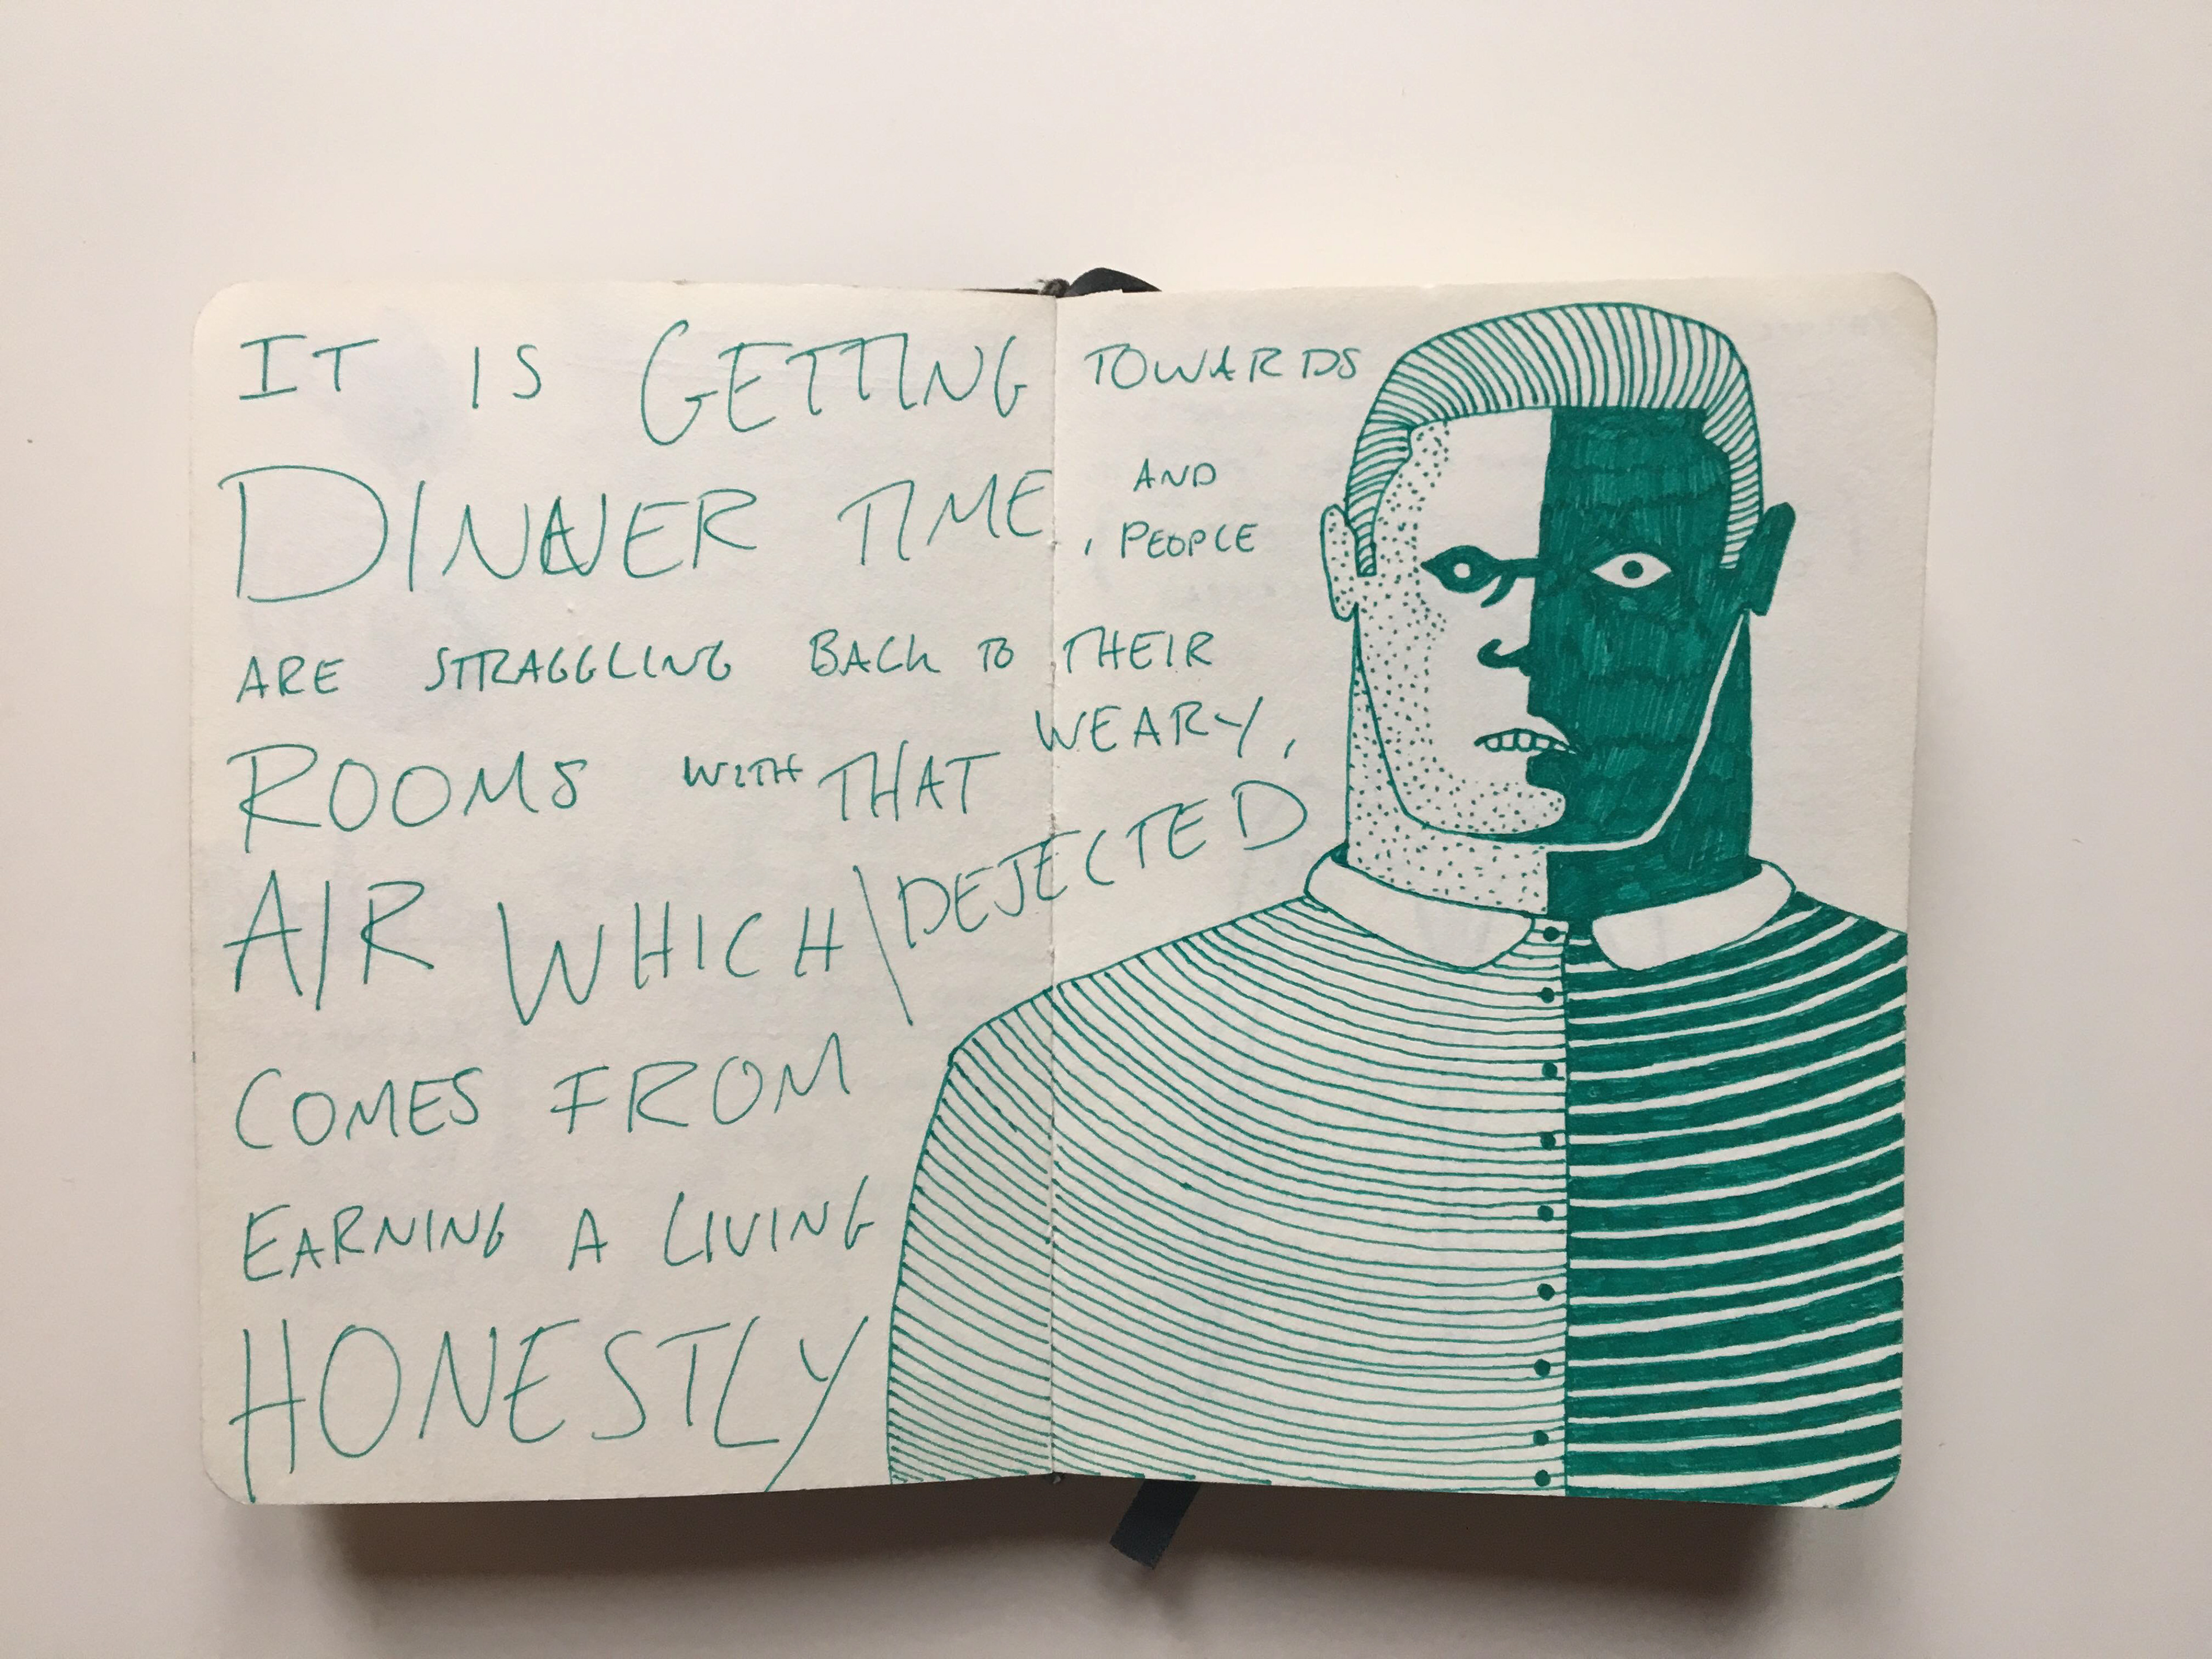 IT IS GETTING TOWARDS
DINNER TIME, AND PEOPLE
ARE STRAGGLING BACK TO THEIR
ROOMS WITH THAT WEARY,
DEJECTED
AIR WHICH
COMES FROM
EARNING A LIVING
HONESTLY